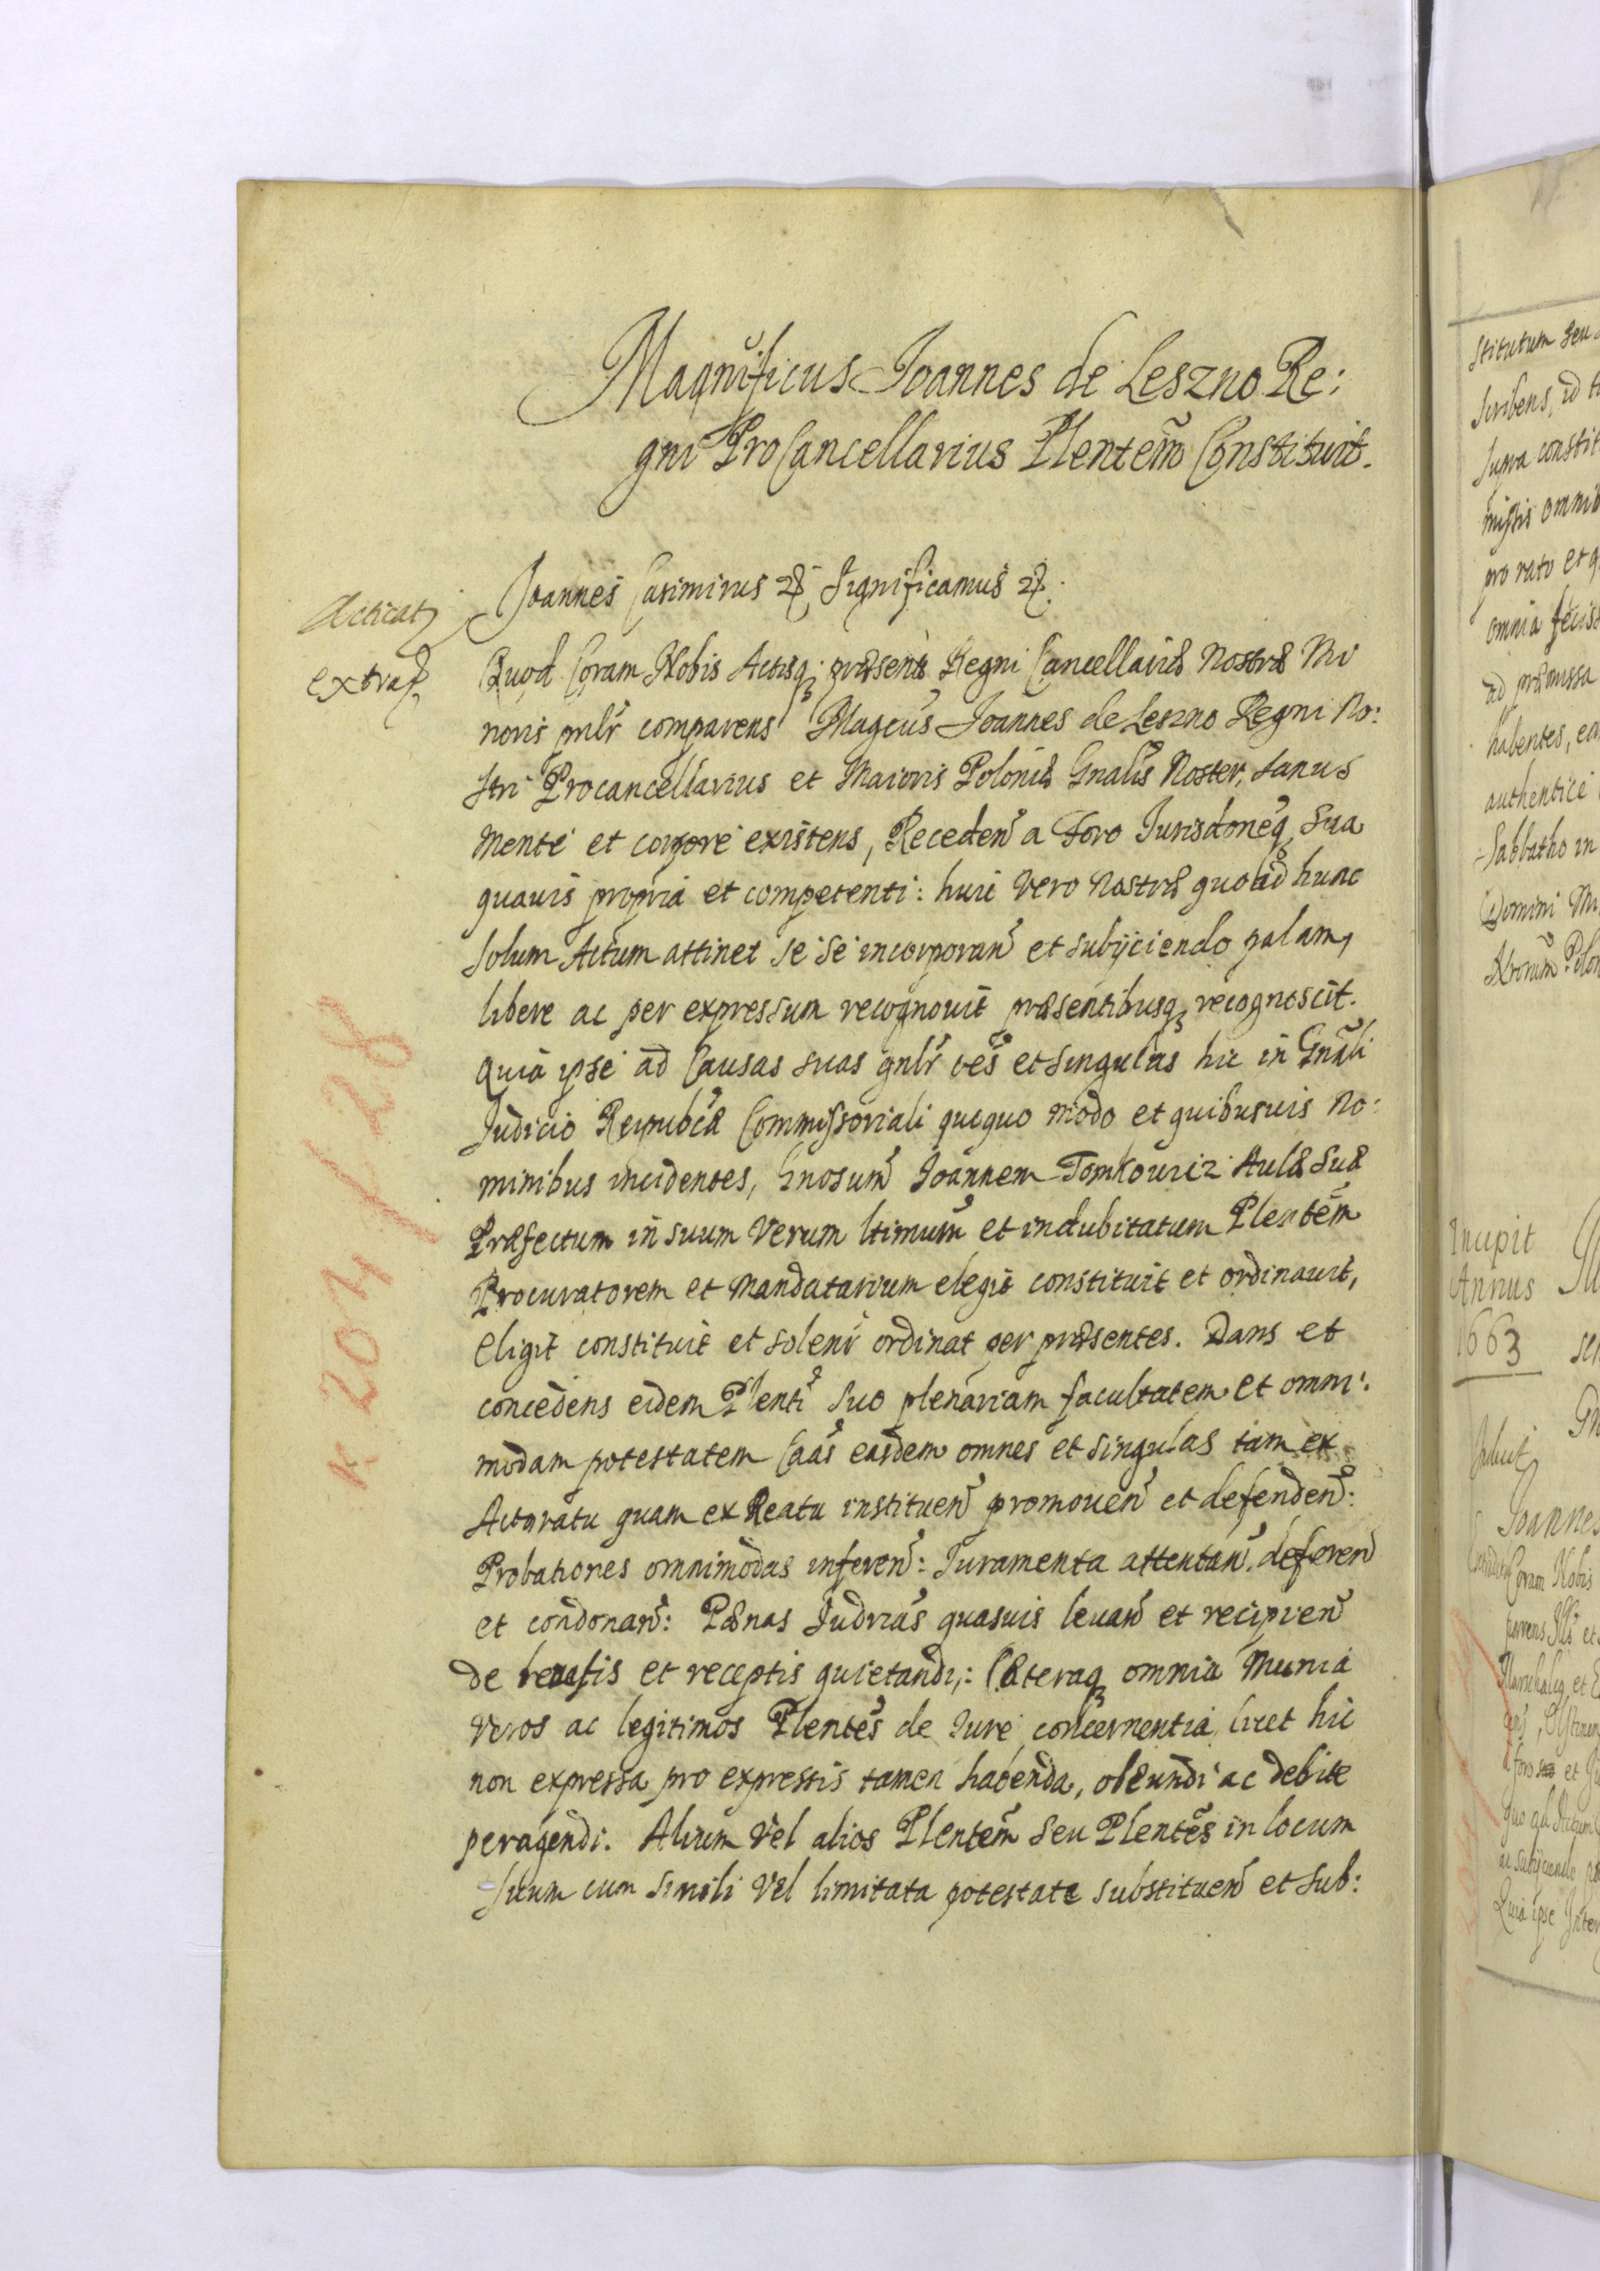 Magnificus Joannes de Leszno Re:
gni ProCancellarius Plentem̃ Constituit.
Joannes Casimirus Significamus
Acticat
extrad
Quod Coram Nobis Actisq præsenti Regni Cancellariæ Nostræ Mi
noris pnlr comparens Magcus Joannes de Leszno Regni No:
stri Procancellarius et Maioris Poloniæ Gnalis Noster, sanus
mente et corpore existens, Receden a Foro Jurisdoneq sua
quauis propria et competenti: huic vero nostræ quo ad hunc
solum Actum attinet se se incorporan et subijciendo palam,
libere ac per expressum recognouit præsentibusq recognoscit.
Quia ipse ad Causas suas gnlr oes et singulas hic in Gnali
Judicio Reipublcæ Commissoriali quoquo modo et quibusuis no:
minibus incidentes, Gnosum Joannem Tomkowicz Aulæ Suæ
Præfectum in suum verum ltimum et indubitatum Plentem
Procuratorem et Mandatarium elegit constituit et ordinauit,
Eligit constituit et solenr ordinat per præsentes. Dans et
concedens eidem Plenti suo plenariam facultatem et omni:
modam potestatem Caas easdem omnes et singulas tam ex
Actoratu quam ex Reatu instituen promouen et defenden:
Probationes omnimodas inferen: Juramenta attentan. deferen
et condonan: Pænas Judrias quasuis leuan et recipien
de leuatis et receptis quietandi,: Cæteraq omnia Munia
veros ac legitimos Plentes de Jure concernentia licet hic
non expressa pro expressis tamen habenda, obeundi ac debite
peragendi. Alium vel alios Plentem seu Plentes in locum
suum cum simili vel limitata potestate substituen et sub:
k 204 / 28
stitutum seu
scribens, id
supra constit
missis omnib
pro rato et
omnia fecis
ad præmissa
habentes, ea
authentice
Sabbatho in
Domini Mi
Nrorum Polon
Incipit
Annus
1663
Joannes
Coram Nobis
Quia ipse Inter